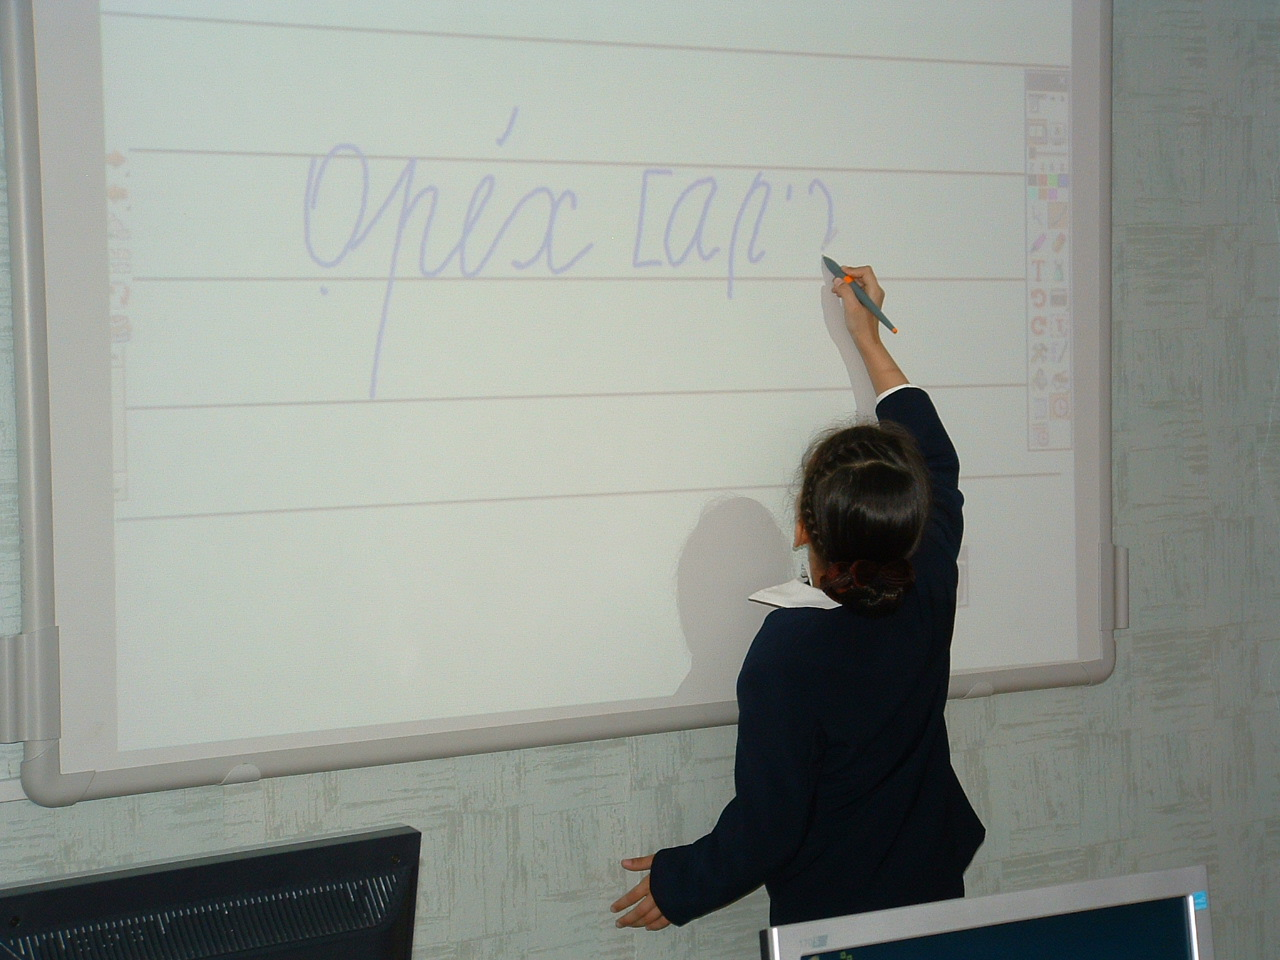 Орéх [ар'э